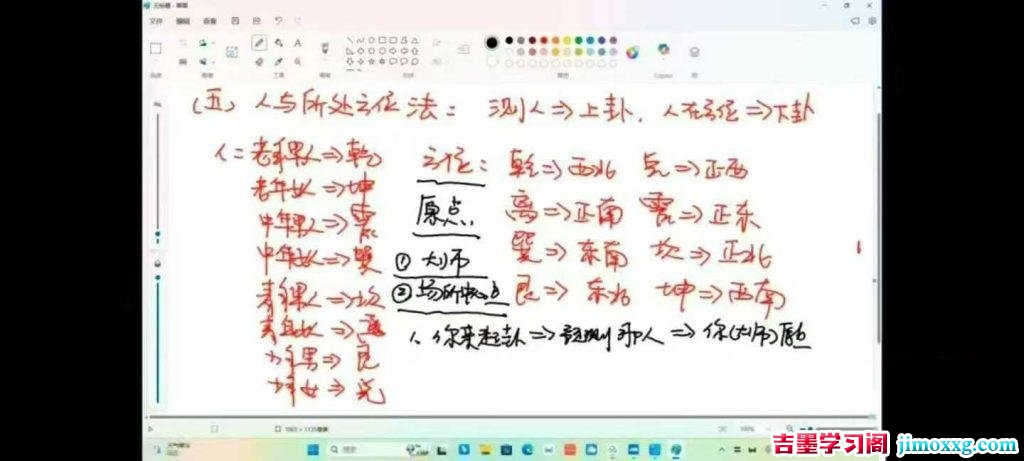 文件 编辑 查看
(五) 人与所处之位法： 测人⇒上卦，人在之位⇒下卦
人：老年男人⇒乾
老年女⇒坤
中年男人⇒震
中年女⇒巽
青年男人⇒坎
青年女⇒离
少年男⇒艮
少年女⇒兑
之位：乾⇒西北 兑⇒正西
离⇒正南 震⇒正东
巽⇒东南 坎⇒正北
艮⇒东北 坤⇒西南
原点
① 大师
② 场所中心点
1、你来起卦⇒ 那人⇒你(大师)原点
搜索
吉墨学习阁 jimoxxg.com